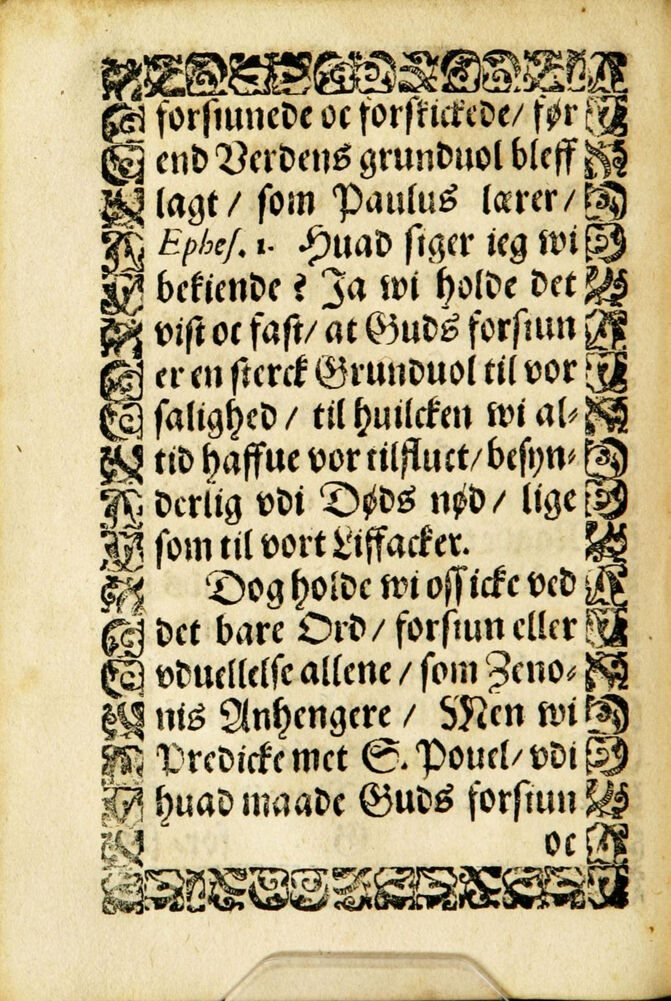 forsiunede oc forskickede/ før
end Verdens grunduol bleff
lagt / som Paulus lærer /
Ephes. 1. Huad siger ieg wi
bekiende ? Ja wi holde det
vist oc fast/ at Guds forsiun
er en sterck Grunduol til vor
salighed / til huilcken wi al⸗
tid haffue vor tilfluct/ besyn⸗
derlig vdi Døds nød / lige
som til vort Liffacker.
Dog holde wi oss icke ved
det bare Ord / forsiun eller
vduellelse allene / som Zeno⸗
nis Anhengere / Men wi
Predicke met S. Pouel/ vdi
huad maade Guds forsiun
oc